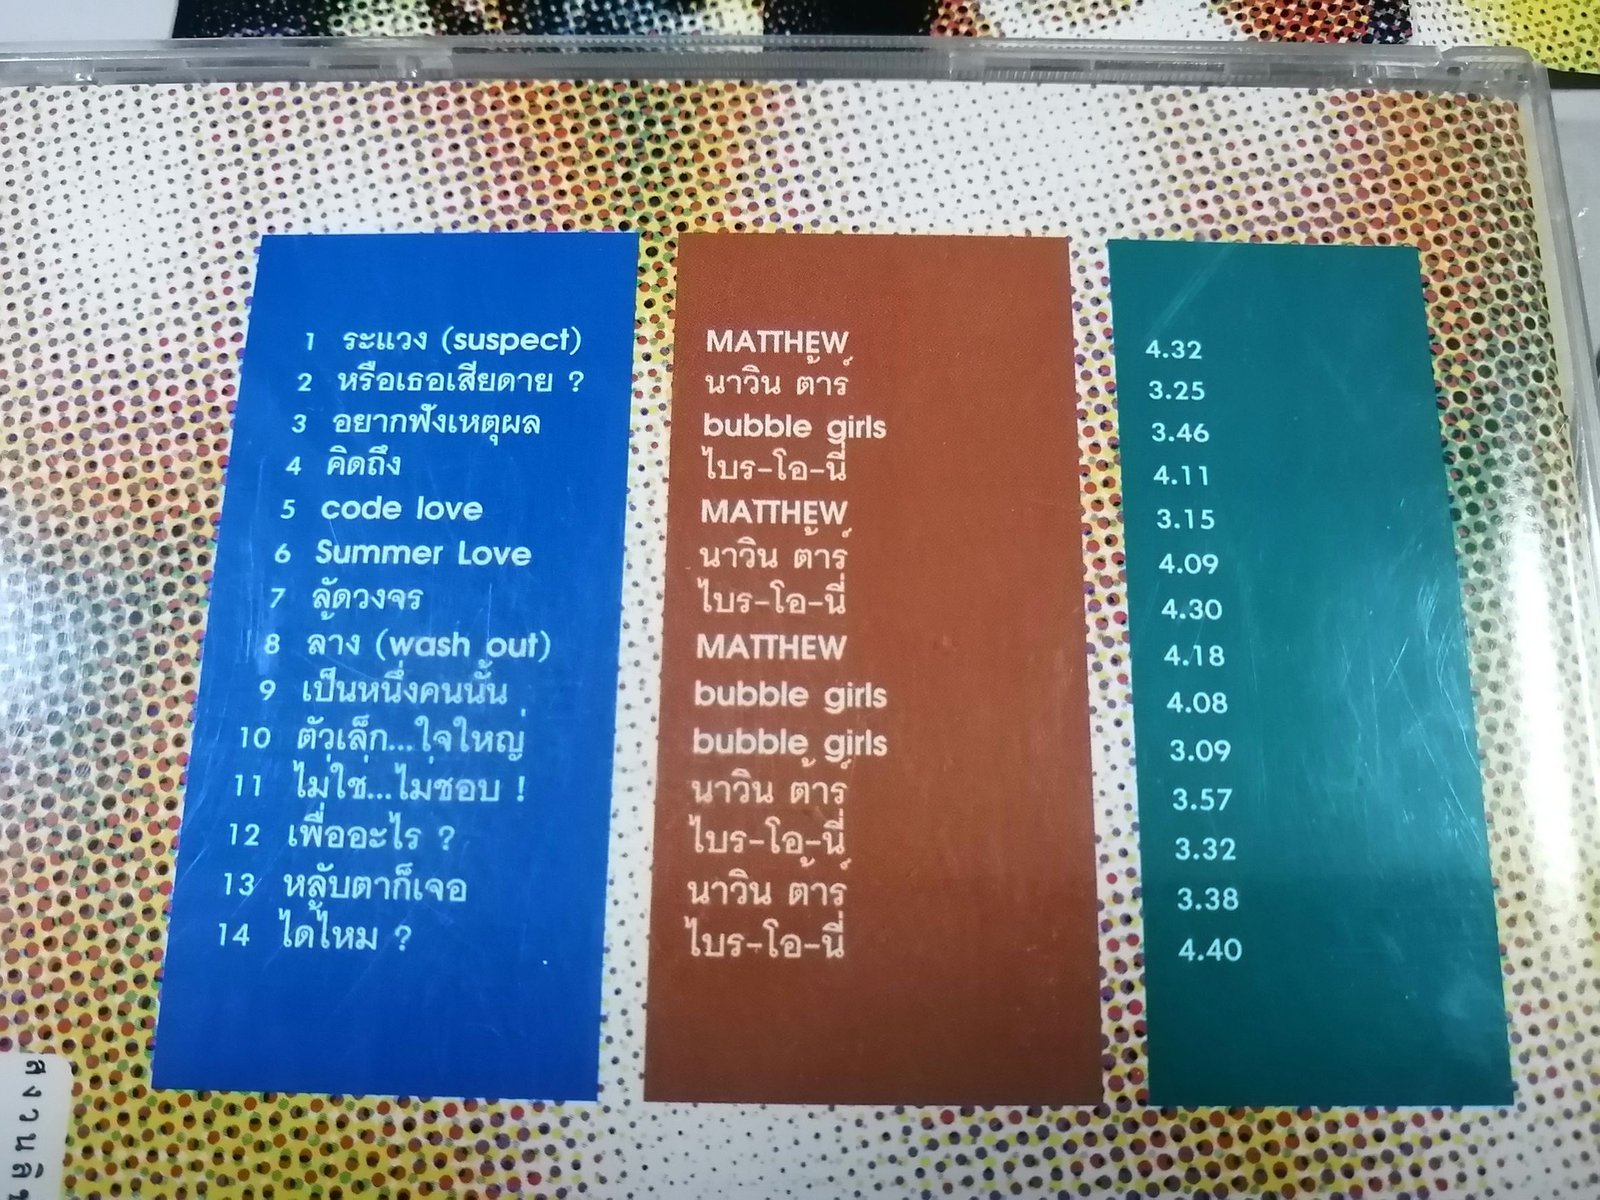 1 ระแวง (suspect) MATTHEW 4.32
2 หรือเธอเสียดาย ? นาวิน ต้าร์ 3.25
3 อยากฟังเหตุผล bubble girls 3.46
4 คิดถึง ไบร-โอ-นี่ 4.11
5 code love MATTHEW 3.15
6 Summer Love นาวิน ต้าร์ 4.09
7 ลัดวงจร ไบร-โอ-นี่ 4.30
8 ล้าง (wash out) MATTHEW 4.18
9 เป็นหนึ่งคนนั้น bubble girls 4.08
10 ตัวเล็ก...ใจใหญ่ bubble girls 3.09
11 ไม่ใช่...ไม่ชอบ ! นาวิน ต้าร์ 3.57
12 เพื่ออะไร ? ไบร-โอ-นี่ 3.32
13 หลับตาก็เจอ นาวิน ต้าร์ 3.38
14 ได้ไหม ? ไบร-โอ-นี่ 4.40